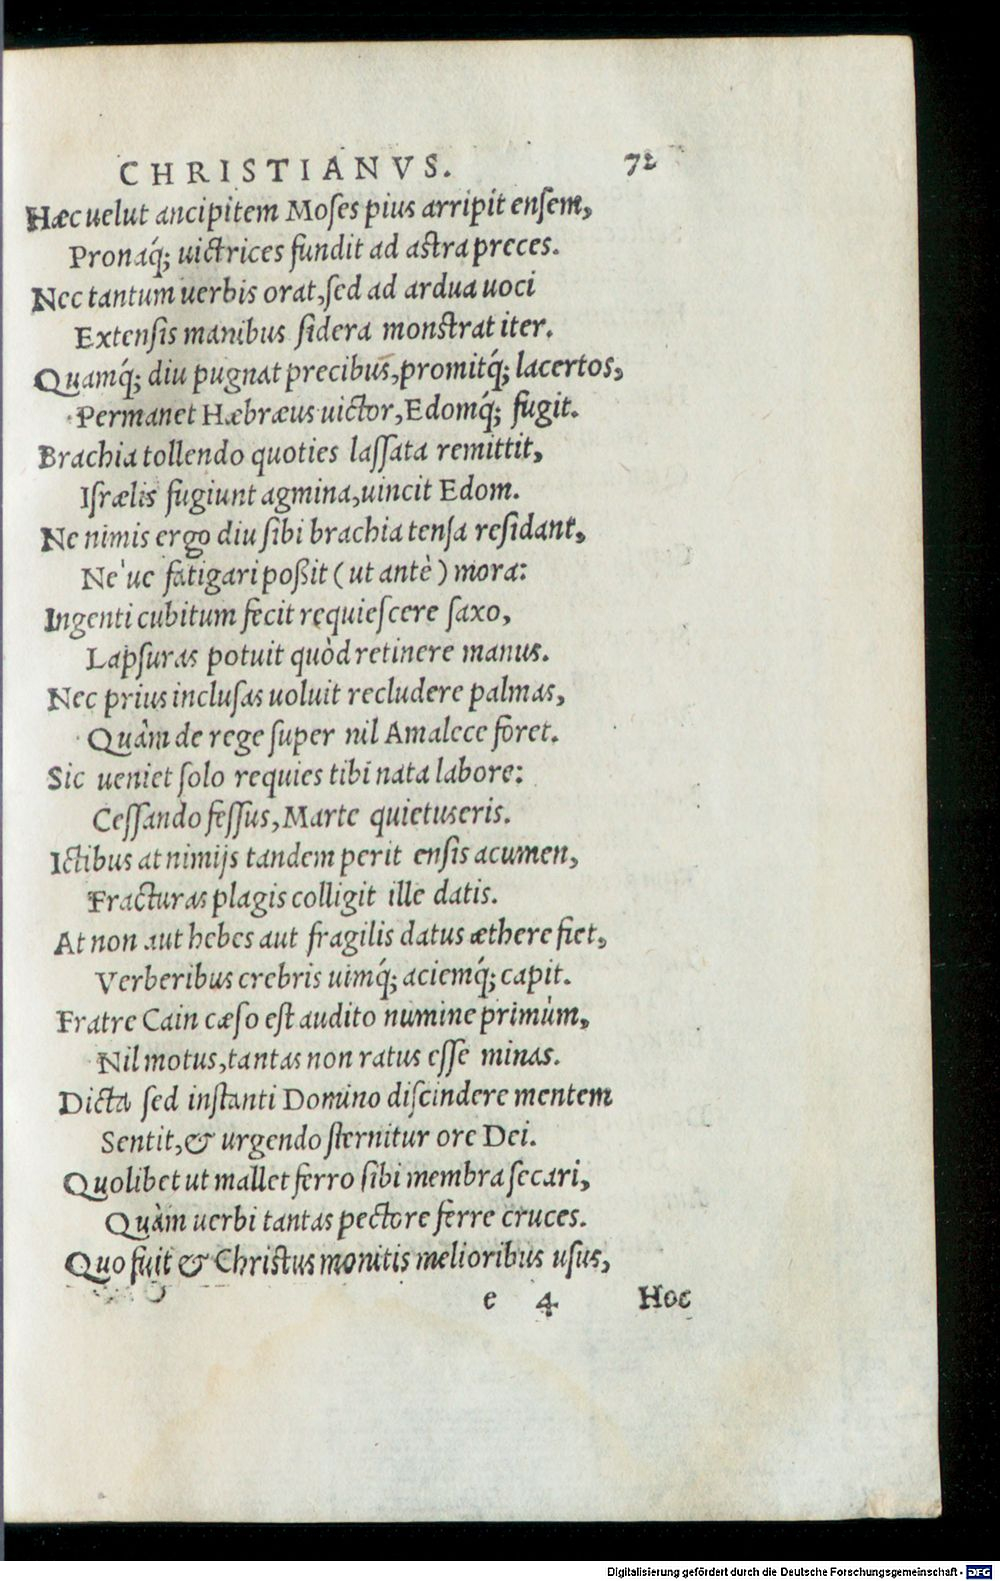 CHRISTIANVS. 72
Hæc uelut ancipitem Moses pius arripit ensem,
Pronaq́; uictrices fundit ad astra preces.
Nec tantum uerbis orat, sed ad ardua uoci
Extensis manibus sidera monstrat iter.
Quamq́; diu pugnat precibus, promitq́; lacertos,
Permanet Hæbræus uictor, Edomq́; fugit.
Brachia tollendo quoties lassata remittit,
Israelis fugiunt agmina, uincit Edom.
Ne nimis ergo diu sibi brachia tensa residant,
Ne'ue fatigari poßit (ut antè) mora:
Ingenti cubitum fecit requiescere saxo,
Lapsuras potuit quòd retinere manus.
Nec prius inclusas uoluit recludere palmas,
Quàm de rege super nil Amalece foret.
Sic ueniet solo requies tibi nata labore:
Cessando fessus, Marte quietus eris.
Ictibus at nimijs tandem perit ensis acumen,
Fracturas plagis colligit ille datis.
At non aut hebes aut fragilis datus æthere fiet,
Verberibus crebris uimq́; aciemq́; capit.
Fratre Cain cæso est audito numine primùm,
Nil motus, tantas non ratus esse minas.
Dicta sed instanti Domino discindere mentem
Sentit, & urgendo sternitur ore Dei.
Quolibet ut mallet ferro sibi membra secari,
Quàm uerbi tantas pectore ferre cruces.
Quo fuit & Christus monitis melioribus usus,
e 4 Hoc
Digitalisierung gefördert durch die Deutsche Forschungsgemeinschaft - DFG